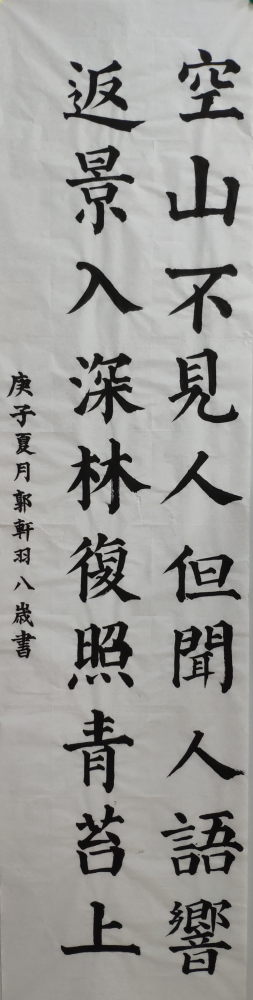 空山不見人但聞人語響
返景入深林復照青苔上
庚子夏月郭軒羽八歲書